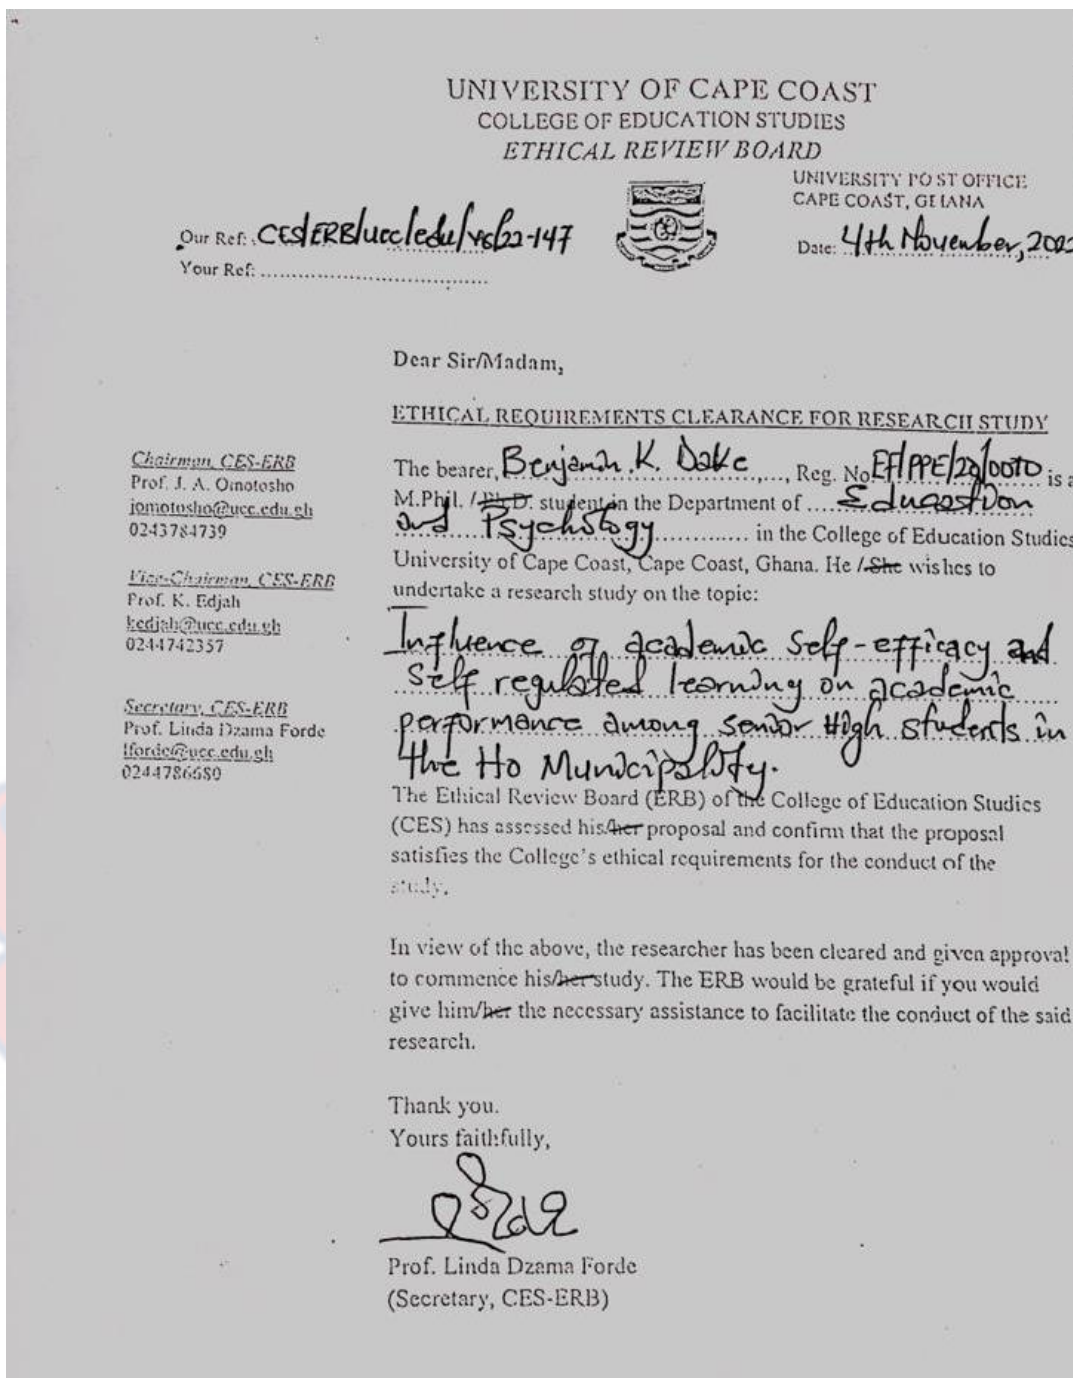 UNIVERSITY OF CAPE COAST
COLLEGE OF EDUCATION STUDIES
ETHICAL REVIEW BOARD
UNIVERSITY POST OFFICE
CAPE COAST, GHANA
Our Ref: CES/ERB/ucc/edu/v6/22-147
Date: 4th November, 202
Your Ref:
Dear Sir/Madam,
ETHICAL REQUIREMENTS CLEARANCE FOR RESEARCH STUDY
Chairman, CES-ERB
Prof. J. A. Omotosho
jomotosho@ucc.edu.gh
0243784739
Vice-Chairman, CES-ERB
Prof. K. Edjah
kedjah@ucc.edu.gh
0244742357
Secretary, CES-ERB
Prof. Linda Dzama Forde
lforde@ucc.edu.gh
0244786680
The bearer, Benjamin K. Dake, Reg. No EF/PPE/20/0010 is a
M.Phil. / Ph.D. student in the Department of Education
and Psychology in the College of Education Studies
University of Cape Coast, Cape Coast, Ghana. He / She wishes to
undertake a research study on the topic:
Influence of academic Self-efficacy and
Self regulated learning on academic
performance among senior High students in
the Ho Municipality.
The Ethical Review Board (ERB) of the College of Education Studies
(CES) has assessed his/her proposal and confirm that the proposal
satisfies the College's ethical requirements for the conduct of the
study.
In view of the above, the researcher has been cleared and given approval
to commence his/her study. The ERB would be grateful if you would
give him/her the necessary assistance to facilitate the conduct of the said
research.
Thank you.
Yours faithfully,
Prof. Linda Dzama Forde
(Secretary, CES-ERB)